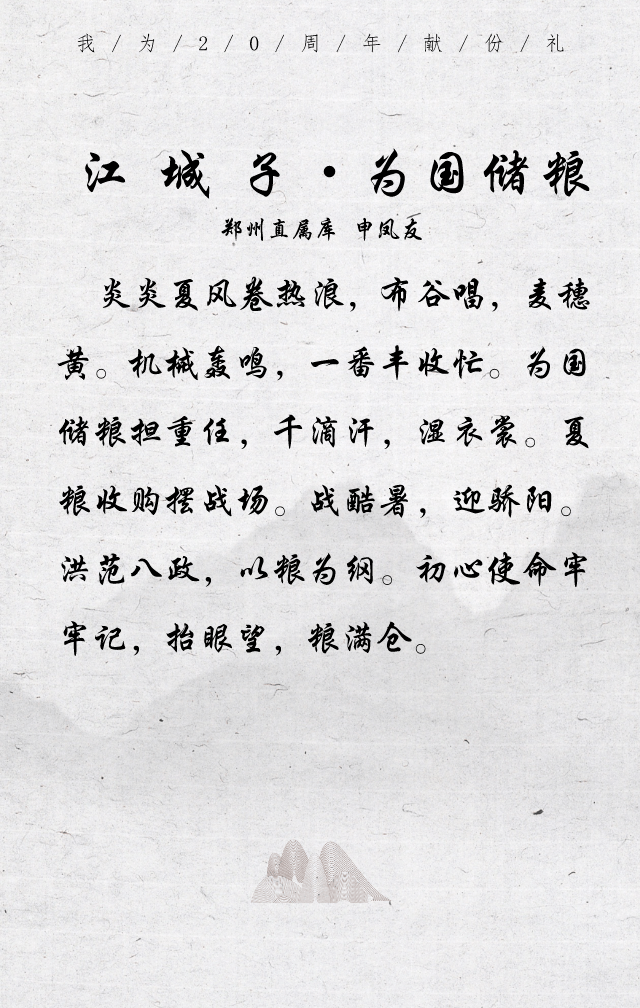 我/为/20周/年/献/份/礼
江城子·为国储粮
郑州直属库 申凤友
炎炎夏风卷热浪，布谷唱，麦穗
黄。机械轰鸣，一番丰收忙。为国
储粮担重任，千滴汗，湿衣裳。夏
粮收购摆战场。战酷暑，迎骄阳。
洪范八政，以粮为纲。初心使命牢
牢记，抬眼望，粮满仓。